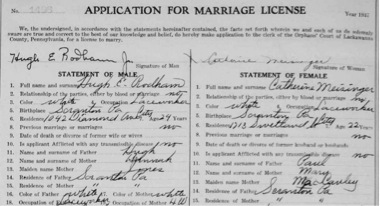 No.
APPLICATION FOR MARRIAGE LICENSE
Year 193
We, the undersigned, in accordance with the statements hereinafter contained, the facts set forth wherein we and each of us do solemnly
swear are true and correct to the best of our knowledge and belief, do hereby make application to the clerk of the Orphans' Court of Lackawanna
County, Pennsylvania, for a license to marry.
Hugh E Rodham Jr
Signature of Man
Signature of Woman
STATEMENT OF MALE
STATEMENT OF FEMALE
1. Full name and surname Hugh E. Rodham
1. Full name and surname
2. Relationship of the parties, either by blood or marriage no
2. Relationship of the parties, either by blood or marriage no
3. Color white 4. Occupation Laceworker
3. Color white 4. Occupation Laceworker
5. Birthplace Scranton Pa
5. Birthplace Scranton Pa
6. Residence 1042 Diamond Age 24 Years
6. Residence 1713 Age 22 Years
8. Previous marriage or marriages no
8. Previous marriage or marriages no
9. Date of death or divorce of former wife or wives
9. Date of death or divorce of former husband or husbands
10. Is applicant Afflicted with any transmissible disease no
10. Is applicant Afflicted with any transmissible disease no
11. Name and surname of Father Hugh
11. Name and surname of Father Paul
12. Name and surname of Mother Hannah
12. Name and surname of Mother Mary
13. Maiden name of Mother Jones
13. Maiden name of Mother
14. Residence of Father Scranton Pa
14. Residence of Father Scranton Pa
15. Residence of Mother " "
15. Residence of Mother
16. Color of Father white 17. Color of Mother white